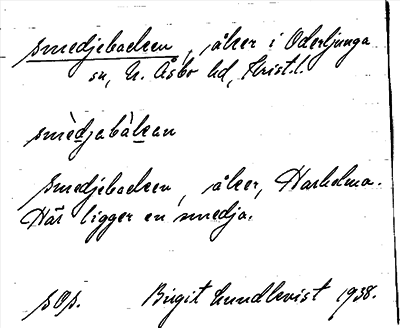 smedjebacken, åker i Oderljunga
sn, N. Åsbo hd, Krist.l.
smèdjabàkan
smedjebacken, åker, Harholma.
Här ligger en smedja.
sOs. Birgit Lundkvist 1938.